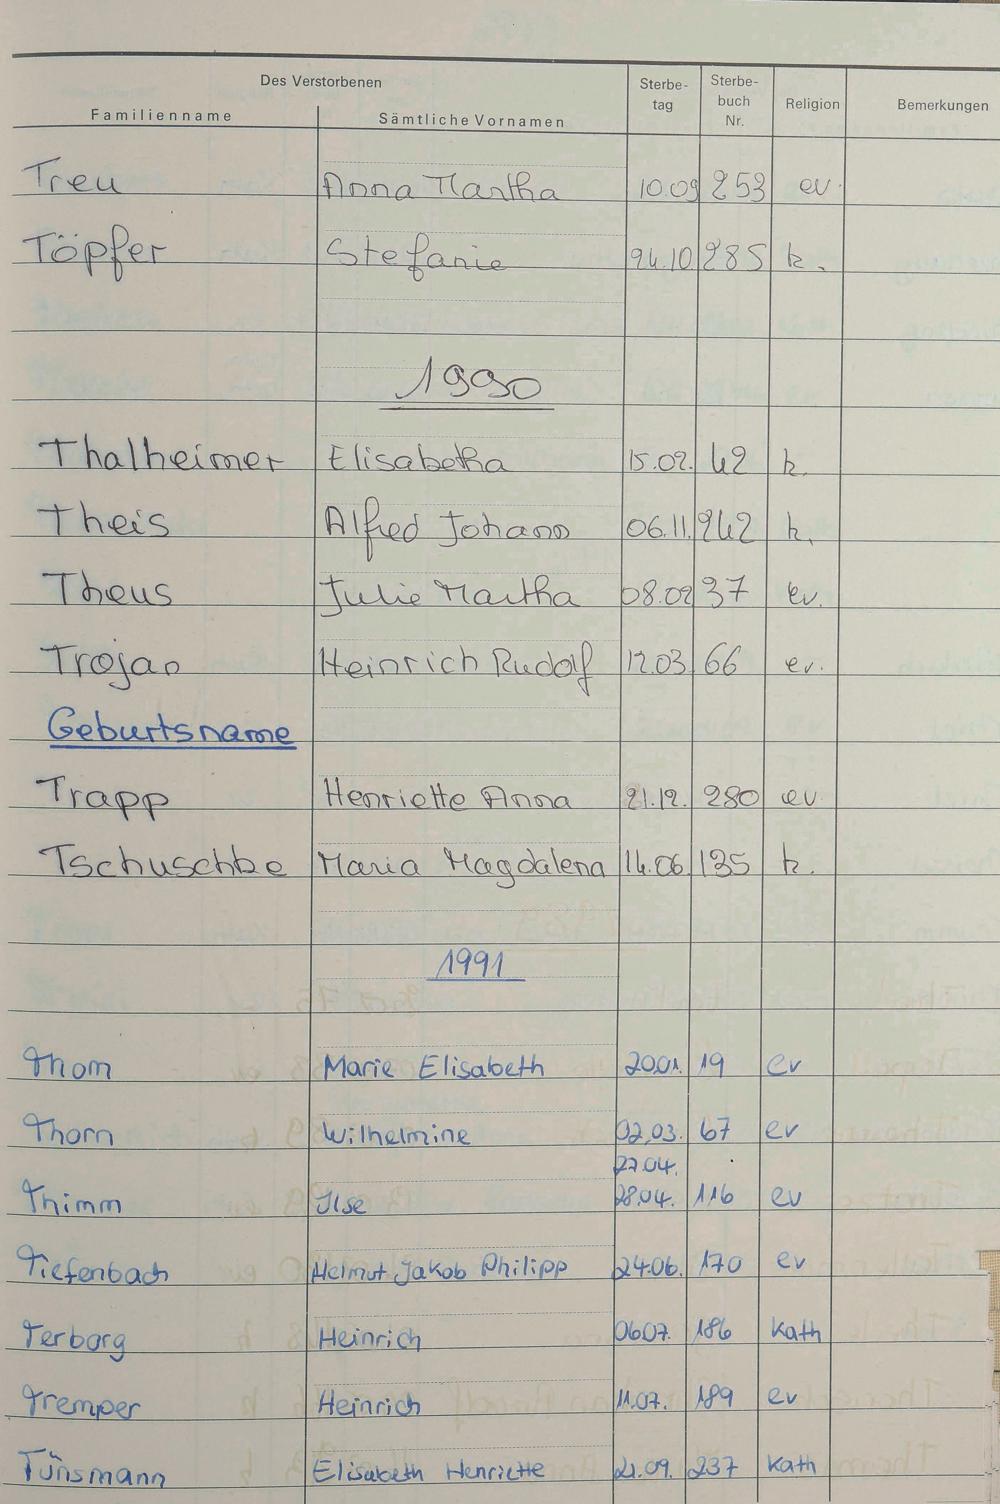 Des Verstorbenen
Familienname Sämtliche Vornamen Sterbe-tag Sterbe-buch Nr. Religion Bemerkungen
Treu Anna Martha 10.09 253 ev.
Töpfer Stefanie 24.10 285 k.
1990
Thalheimer Elisabetha 15.02. 42 k.
Theis Alfred Johann 06.11. 242 k.
Theus Julie Martha 08.02 37 ev.
Trojan Heinrich Rudolf 12.03 66 ev.
Geburtsname
Trapp Henriette Anna 21.12. 280 ev.
Tschuschke Maria Magdalena 14.06 135 k.
1991
Thom Marie Elisabeth 20.01. 19 ev
Thorn Wilhelmine 02.03. 67 ev
27.04.
Thimm Ilse 28.04. 116 ev
Tiefenbach Helmut Jakob Philipp 24.06. 170 ev
Terborg Heinrich 06.07. 186 Kath
Tremper Heinrich 11.07. 189 ev
Tünsmann Elisabeth Henriette 21.09. 237 Kath